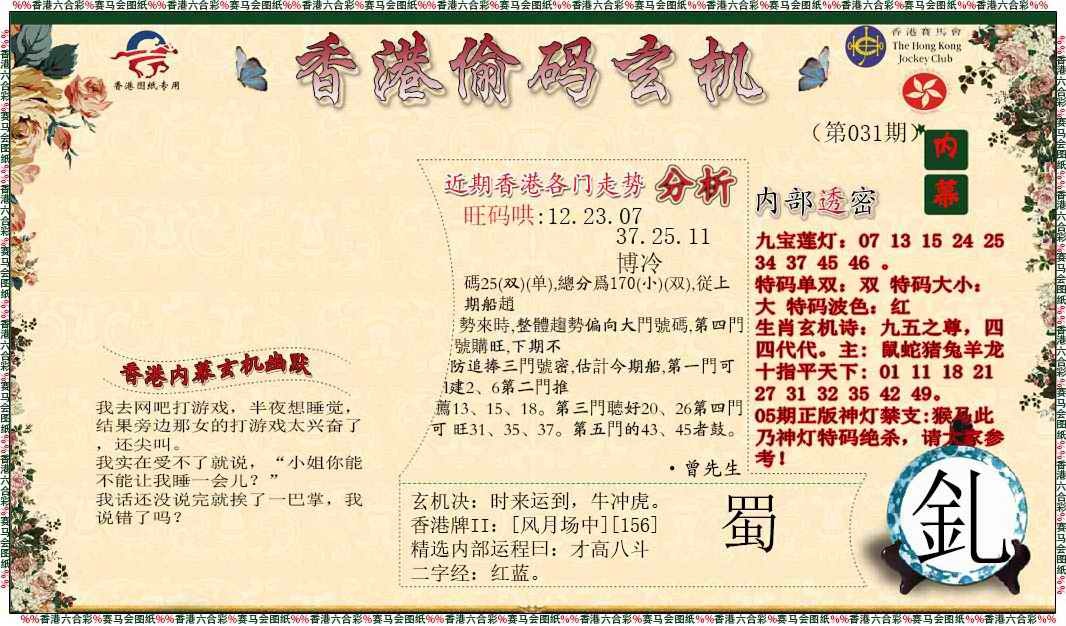 %%香港六合彩%赛马会图纸%%香港六合彩%赛马会图纸%%香港六合彩%赛马会图纸%%香港六合彩%赛马会图纸%%香港六合彩%赛马会图纸%%香港六合彩%赛马会图纸%%香港六合彩%赛马会图纸%%香港六合彩%%
香港图纸专用
香港偷码玄机
香港賽馬會
The Hong Kong
Jockey Club
（第031期）
内幕
近期香港各门走势 分析
旺码哄:12.23.07
37.25.11
博冷
碼25(双)(单),總分爲170(小)(双),從上
期船趙
勢來時,整體趨勢偏向大門號碼,第四門
號購旺,下期不
防追捧三門號密,估計今期船,第一門可
建2、6第二門推
薦13、15、18。第三門聽好20、26第四門
可 旺31、35、37。第五門的43、45者鼓。
・曾先生
内部透密
九宝莲灯：07 13 15 24 25
34 37 45 46 。
特码单双：双 特码大小：
大 特码波色：红
生肖玄机诗：九五之尊，四
四代代。主：鼠蛇猪兔羊龙
十指平天下：01 11 18 21
27 31 32 35 42 49。
05期正版神灯禁支:猴马此
乃神灯特码绝杀，请大家参
考！
香港内幕玄机幽默
我去网吧打游戏，半夜想睡觉，
结果旁边那女的打游戏太兴奋了
，还尖叫。
我实在受不了就说，“小姐你能
不能让我睡一会儿？”
我话还没说完就挨了一巴掌，我
说错了吗？
玄机决：时来运到，牛冲虎。
香港牌II：[风月场中][156]
精选内部运程曰：才高八斗
二字经：红蓝。
蜀
釓
%%香港六合彩%赛马会图纸%%香港六合彩%赛马会图纸%%香港六合彩%赛马会图纸%%香港六合彩%赛马会图纸%%香港六合彩%赛马会图纸%%香港六合彩%赛马会图纸%%香港六合彩%赛马会图纸%%香港六合彩%%